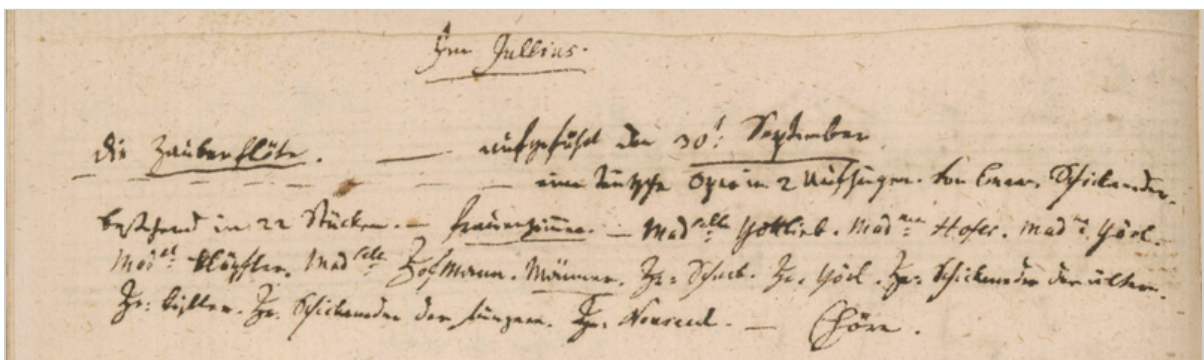 Im Jullius.
die Zauberflöte. — aufgeführt den 30t: September.
eine teutsche Oper in 2 Aufzügen. von Eman. Schickaneder.
bestehend in 22 Stücken. — frauenzimmer. — Mad:selle Gottlieb. Mad:me Hofer. Mad:me Görl.
Mad:lle Klöpfler. Mad:selle Hofmann. Männer. Hr: Schack. Hr: Görl. Hr: Schickaneder der ältere.
Hr: Kistler. Hr: Schickaneder der Jüngere. Hr: Nouseul. — Chöre.